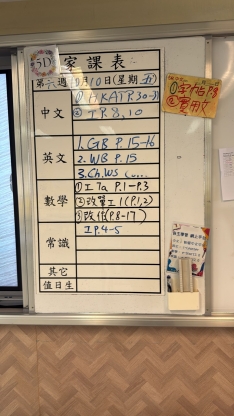 5D 家課表
第六週 月10日(星期五)
中文
① HKAT P.30-31
② IP.8,10
英文
1. GB P.15-16
2. WB P.15
3. Ch.WS
數學
① 工7a P.1-P.3
② 改單工1(P.1,2)
③ 改作(P.8-17)
常識
IP.4-5
其它
值日生
①字帖P.8
②實用文